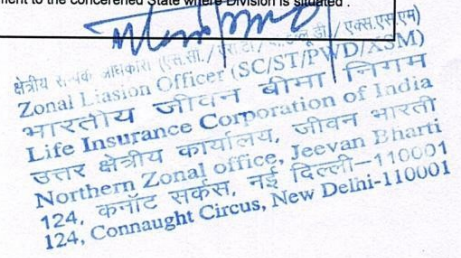 ment to the concerened State where Division is situated .
क्षेत्रीय संपर्क अधिकारी (एस.सी./एस.टी./ / एक्स.एस.एम)
Zonal Liasion Officer (SC/ST/PWD/XSM)
भारतीय जीवन बीमा निगम
Life Insurance Corporation of India
उत्तर क्षेत्रीय कार्यालय, जीवन भारती
Northern Zonal office, Jeevan Bharti
124, कनॉट सर्कस, नई दिल्ली-110001
124, Connaught Circus, New Delhi-110001